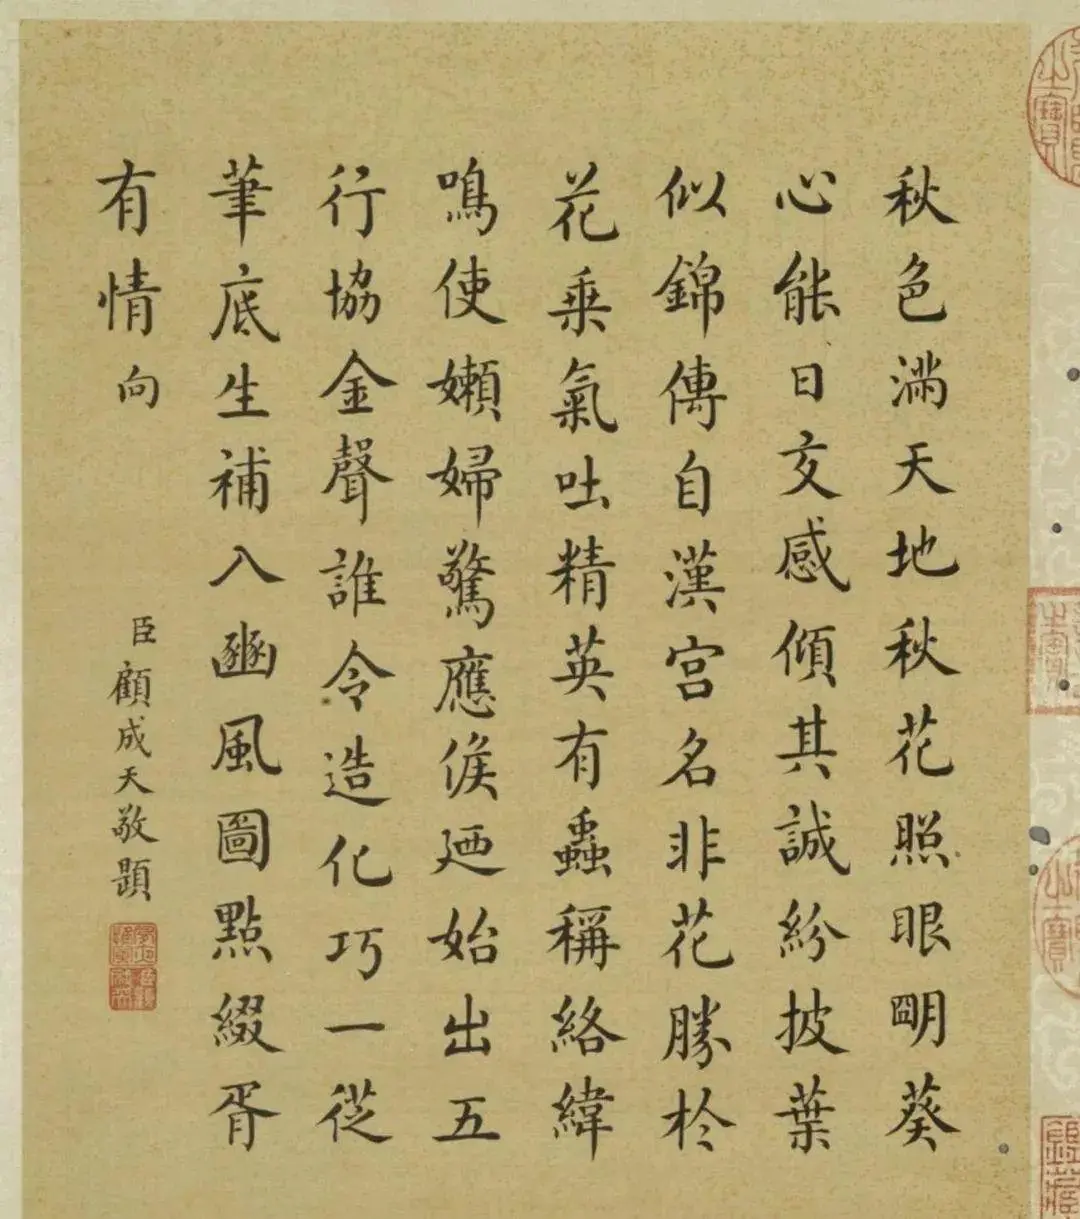 秋色滿天地秋花照眼明葵
心能日交感傾其誠紛披葉
似錦傳自漢宮名非花勝於
花乗氣吐精英有蟲稱絡緯
鳴使嬾婦驚應候廼始出五
行協金聲誰令造化巧一從
筆底生補入豳風圖點綴胥
有情向
臣顧成天敬題